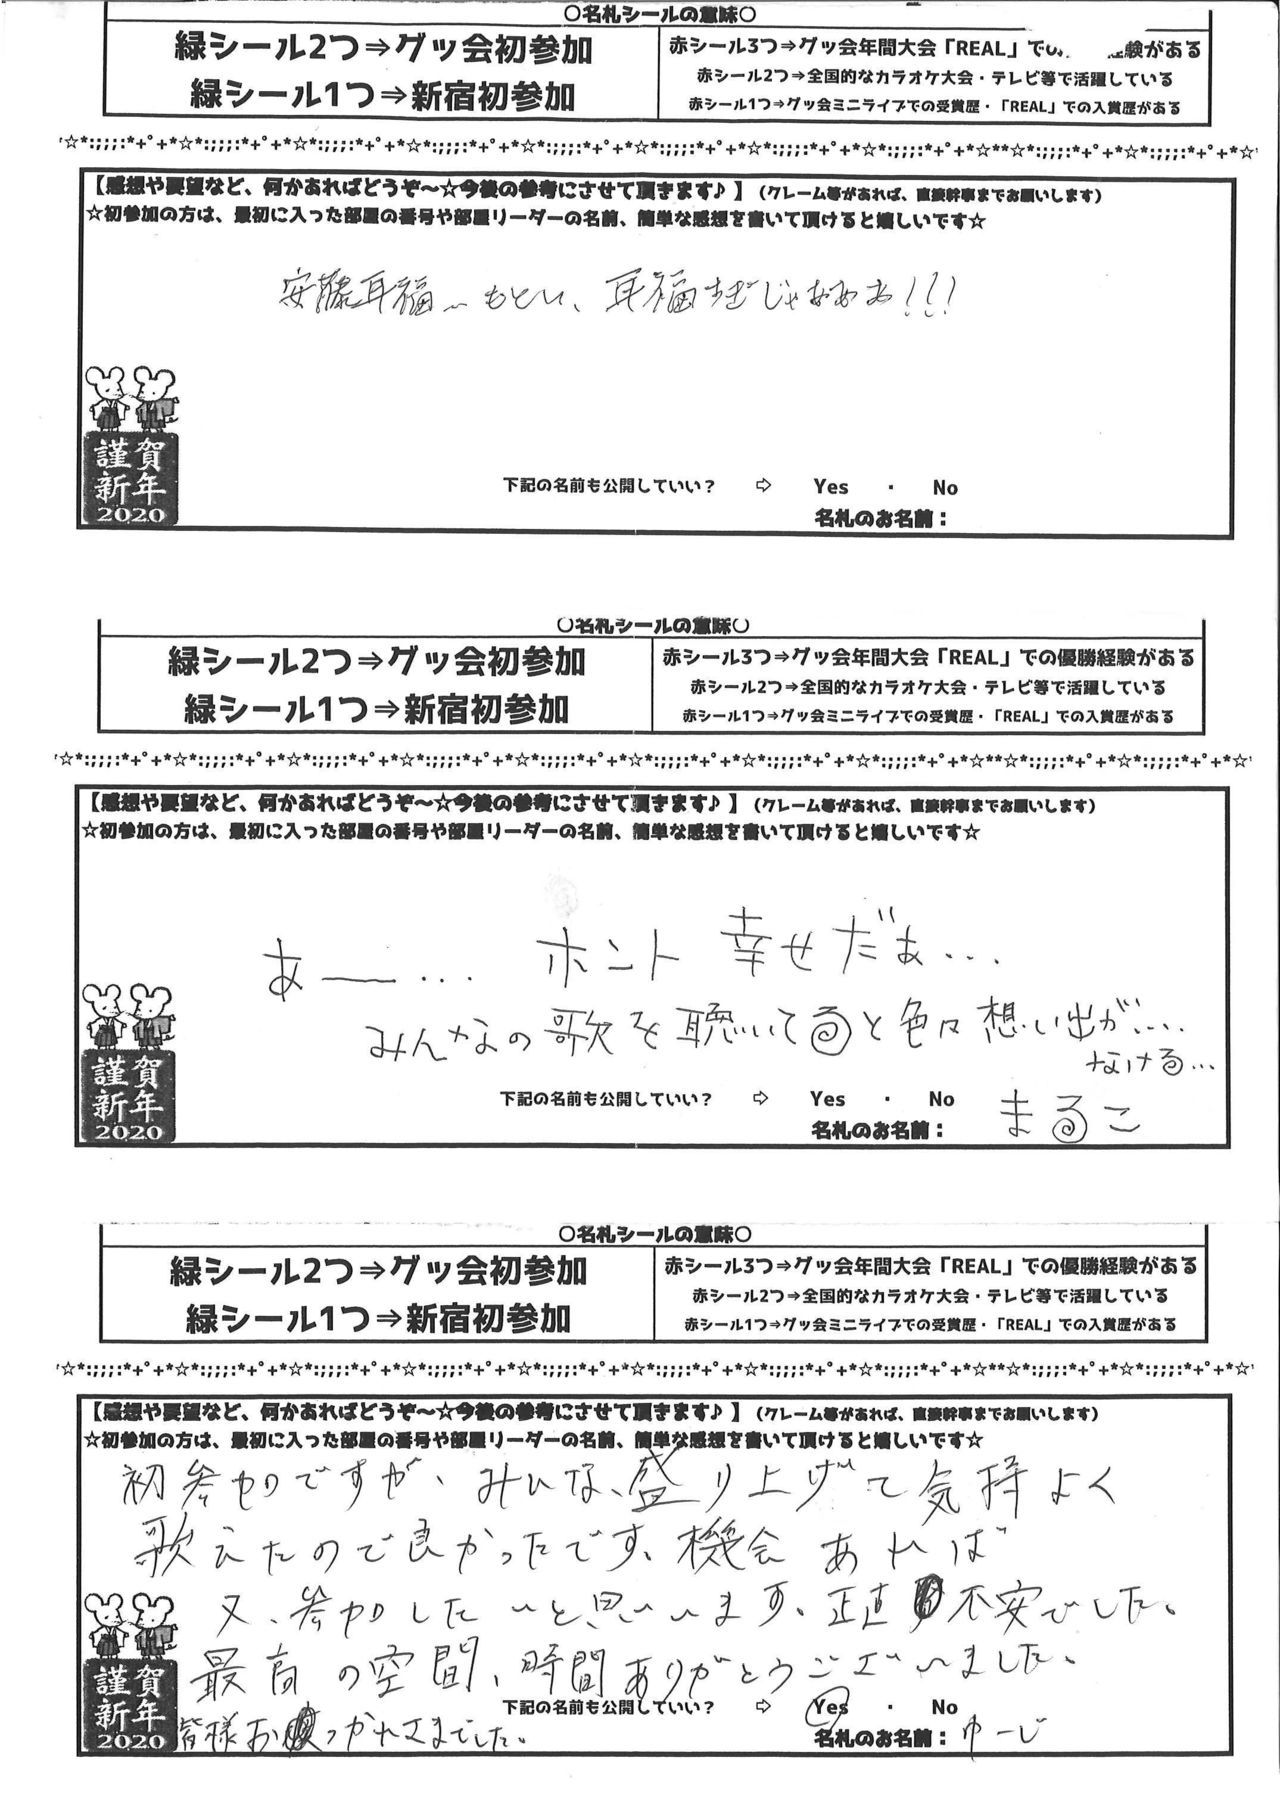 ○名札シールの意味○
緑シール2つ⇒グッ会初参加
緑シール1つ⇒新宿初参加
赤シール3つ⇒グッ会年間大会「REAL」で 験がある
赤シール2つ⇒全国的なカラオケ大会・テレビ等で活躍している
赤シール1つ⇒グッ会ミニライブでの受賞歴・「REAL」での入賞歴がある
'☆*:;;;:*+°+*☆*:;;;:*+°+*☆*:;;;:*+°+*☆*:;;;:*+°+*☆*:;;;:*+°+*☆*:;;;:*+°+*☆*:;;;:*+°+*☆**☆*:;;;:*+°+*☆*:;;;:*+°+*☆'
【感想や要望など、何かあればどうぞ～☆今後の参考にさせて頂きます♪】（クレーム等があれば、直接幹事までお願いします）
☆初参加の方は、最初に入った部屋の番号や部屋リーダーの名前、簡単な感想を書いて頂けると嬉しいです☆
安藤耳福〜もとい、耳福すぎじゃああぁ!!!
謹賀
新年
2020
下記の名前も公開していい？ ⇨ Yes ・ No
名札のお名前：
○名札シールの意味○
緑シール2つ⇒グッ会初参加
緑シール1つ⇒新宿初参加
赤シール3つ⇒グッ会年間大会「REAL」での優勝経験がある
赤シール2つ⇒全国的なカラオケ大会・テレビ等で活躍している
赤シール1つ⇒グッ会ミニライブでの受賞歴・「REAL」での入賞歴がある
'☆*:;;;:*+°+*☆*:;;;:*+°+*☆*:;;;:*+°+*☆*:;;;:*+°+*☆*:;;;:*+°+*☆*:;;;:*+°+*☆*:;;;:*+°+*☆**☆*:;;;:*+°+*☆*:;;;:*+°+*☆'
【感想や要望など、何かあればどうぞ～☆今後の参考にさせて頂きます♪】（クレーム等があれば、直接幹事までお願いします）
☆初参加の方は、最初に入った部屋の番号や部屋リーダーの名前、簡単な感想を書いて頂けると嬉しいです☆
あー... ホント 幸せだぁ...
みんなの歌を聴いてると色々想い出が....
なける...
謹賀
新年
2020
下記の名前も公開していい？ ⇨ Yes ・ No
名札のお名前： まるこ
○名札シールの意味○
緑シール2つ⇒グッ会初参加
緑シール1つ⇒新宿初参加
赤シール3つ⇒グッ会年間大会「REAL」での優勝経験がある
赤シール2つ⇒全国的なカラオケ大会・テレビ等で活躍している
赤シール1つ⇒グッ会ミニライブでの受賞歴・「REAL」での入賞歴がある
'☆*:;;;:*+°+*☆*:;;;:*+°+*☆*:;;;:*+°+*☆*:;;;:*+°+*☆*:;;;:*+°+*☆*:;;;:*+°+*☆*:;;;:*+°+*☆**☆*:;;;:*+°+*☆*:;;;:*+°+*☆'
【感想や要望など、何かあればどうぞ～☆今後の参考にさせて頂きます♪】（クレーム等があれば、直接幹事までお願いします）
☆初参加の方は、最初に入った部屋の番号や部屋リーダーの名前、簡単な感想を書いて頂けると嬉しいです☆
初参加ですが、みんな、盛り上げて気持よく
歌えたので良かったです、機会あれば
又、参加したいと思います、正直不安でした。
最高の空間、時間ありがとうございました。
皆様おつかれさまでした。
謹賀
新年
2020
下記の名前も公開していい？ ⇨ Yes ・ No
名札のお名前： ゆーじ